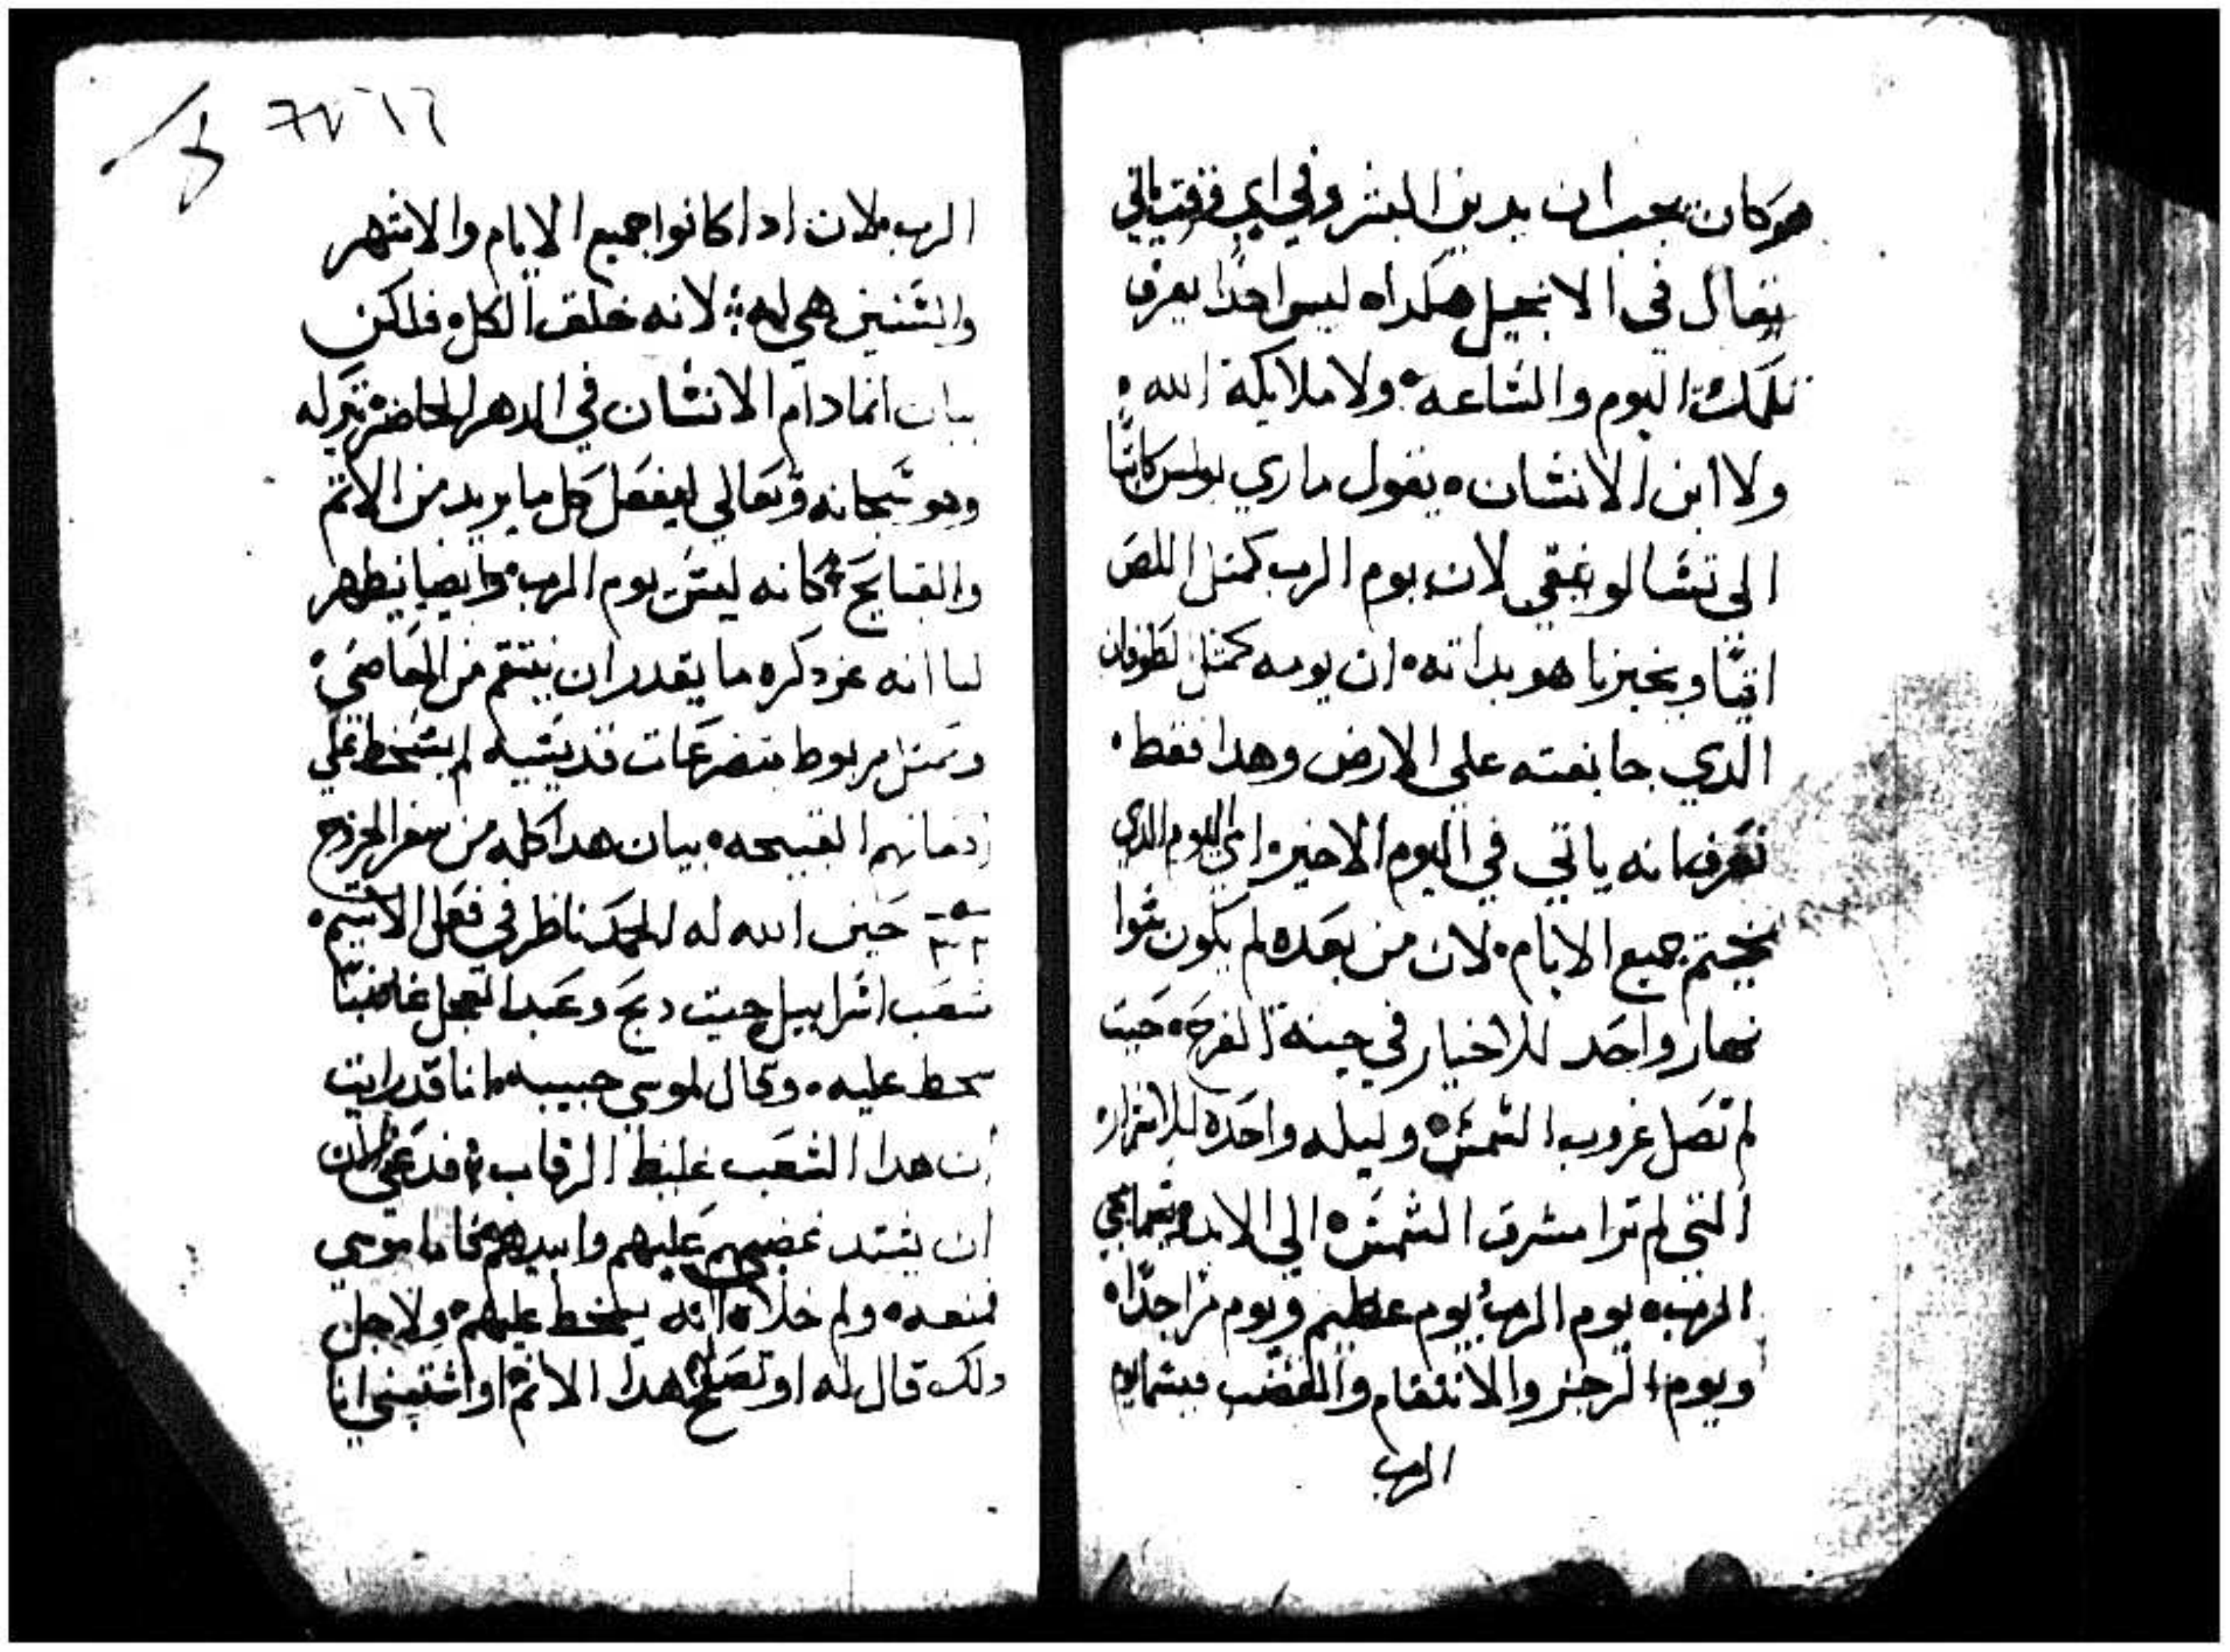 هو كان يجب ان يدين البشر وفي اي وقت ياتي
يقال في الانجيل هكدا ليس احدا يعرف
تلك اليوم والساعه ولا ملايكة الله
ولا ابن الانسان يقول ماري بولس كاتبا
الى تسالونيقي لان يوم الرب كمثل اللص
اتيا ويخبرنا هو بداته ان يومه كمثل لطوفان
الدي جا بغته على الارض وهدا فقط
نعرف انه ياتي في اليوم الاخير اي اليوم الدي
يختم جميع الايام لان من بعده لم يكون سوا
نهار واحد للاخيار في جينة الفرح حيت
لم تصل غروب الشمس وليله واحده للاشرار
التي لم ترا مشرق الشمس الى الابد
الرب يوم الرب يوم عظيم ويوم مرا جدا
ويوم الرجز والانتقام والغضب
الرب
٦٧
الرب لان ادا كانوا جميع الايام والاشهر
والسنين هي له لانه خلق الكل فلكن
بيان انما دام الانسان في الدهر الحاضر
وهو سبحانه وتعالى ليفعل كل ما يريد من الاتم
والقبايح كانه ليس يوم الرب وايضا يظهر
لنا انه عز دكره ما يقدر ان ينتقم من
ومتل مربوط بتضرعات قديسيه لم يسخط على
القبيحه بيان هدا كله من سفر الخروج
٣٢ حين الله له الحمد ناظر في فعل الاتيم
شعب اسراييل حيت دبح وعبد العجل غاضبا
سخط عليه وقال لموسي حبيبه انا قد رايت
ان هدا الشعب غليظ الرقاب فدعني الان
ان يشتد غضبي عليهم وابيدهم موسي
فمنعه ولم خلاه انه يسخط عليهم ولاجل
دلك قال له او تصفح هدا الاتم او انا